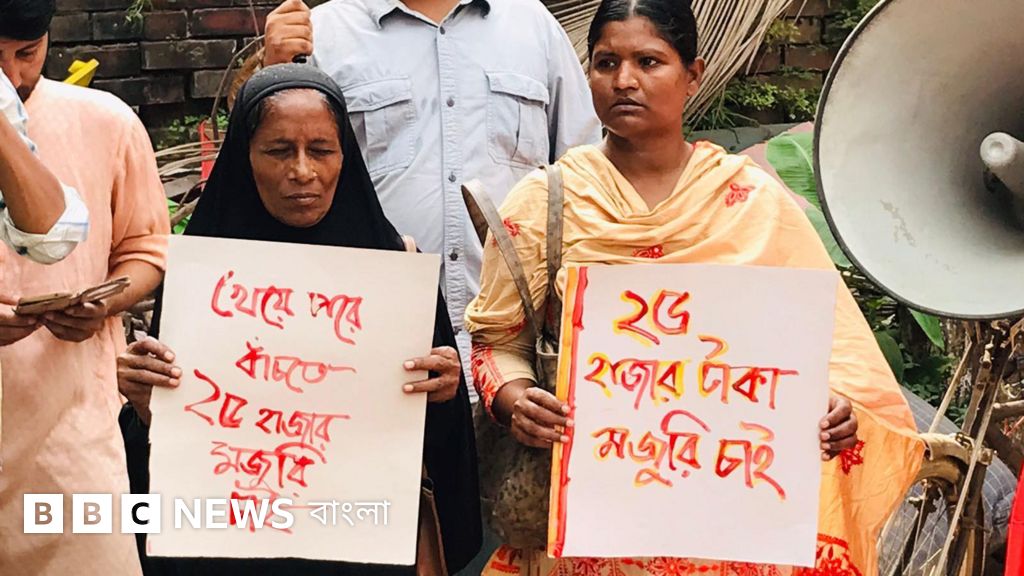 খেয়ে পরে
বাঁচতে
২৫ হাজার
মজুরি
চাই
২৫
হাজার টাকা
মজুরি চাই
BBC NEWS বাংলা